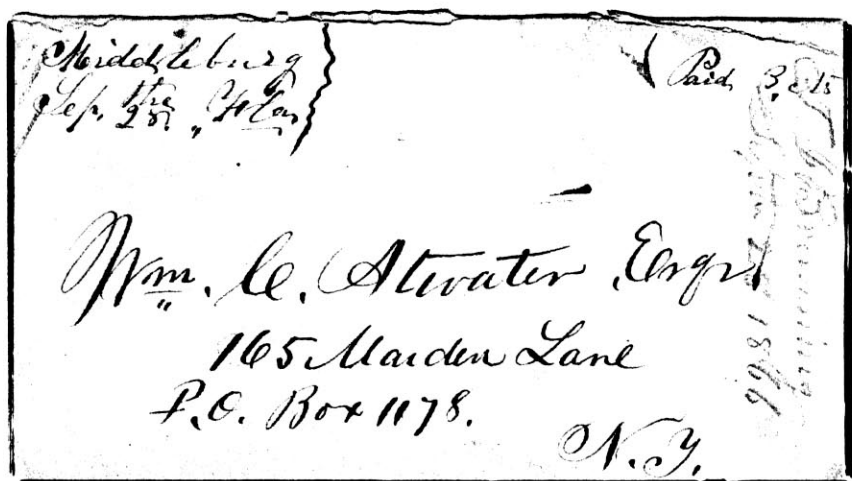 Middleburg
Sep. 25th, Fla
Paid 3 cts
Wm. C. Atwater Esqr.
165 Maiden Lane
P.O. Box 1178.
N.Y.
1866